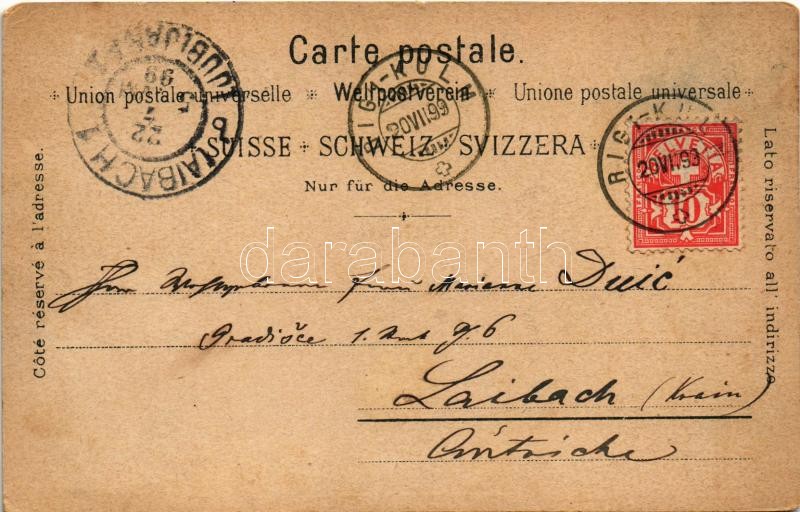 Carte postale.
Union postale universelle ✳ Weltpostverein ✳ Unione postale universale
SUISSE SCHWEIZ SVIZZERA
Nur für die Adresse.
Côté réservé à l'adresse.
Lato riservato all' indirizzo
RIGI-KULM
20 VII.99
RIGI-KULM
20 VII.99
HELVETIA
10
LAIBACH 1
LJUBLJANA 1
22
7
99
darabanth
Marianne Duić
Gradišče
6
Laibach (Krain)
Autriche